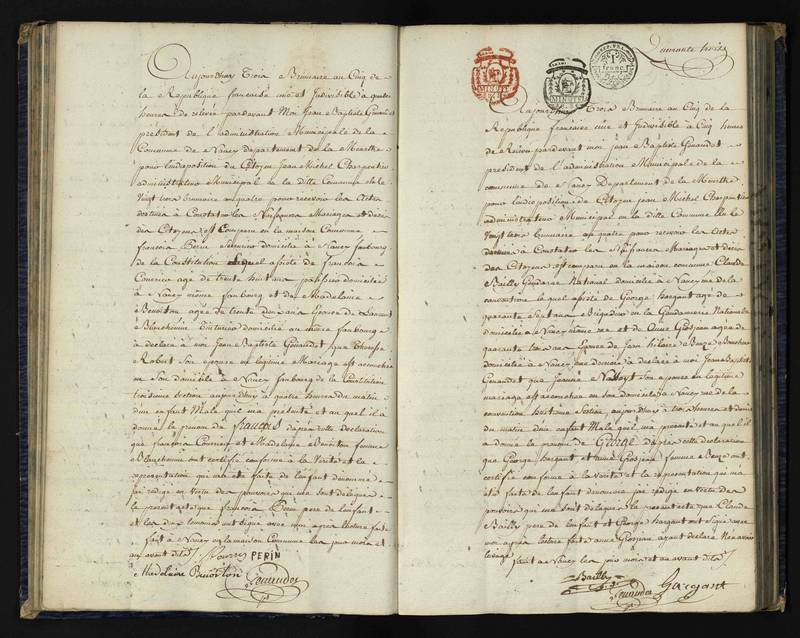 Aujourdhuy Trois Brumaire an Cinq de
la Republique francaise une et Indivisible à quatre
heures de relevée pardevant Moi Jean Baptiste Genaudet
president de l'administration Municipale de la
Commune de Nancy departement de la Meurthe
pour lindisposition du Citoyen Jean Michel Charpentier
administrateur Municipal en la ditte Commune elu le
Vingt trois brumaire an quatre pour recevoir les actes
destinés à Constater les Naissances Mariages et deces
des Citoyens est Comparu en la maison Commune
francois domicilié à Nancy faubourg
de la Constitution lequel assisté de francois
agé de trente huit ans domicilié
à Nancy même faubourg et de Madelaine
agée de trente ans Epouse de Laurent
Blanchenne domicilié au même faubourg
à declaré à moi Jean Baptiste Genaudet que Therese
Robert son epouse en legitime Mariage est accouchée
en Son domicile à Nancy faubourg de la Constitution
troisieme Section aujourdhuy à quatre heures du matin
d'un enfant Male quil ma présenté et au quel il a
donné le prenom de François d'apres cette declaration
que francois et Madelaine femme
Blanchenne ont certifié conforme à la Verité et la
representation qui ma été faite de lenfant dénommé
jai redigé en Vertu des pouvoirs qui me sont delegués
le present acte que francois pere de lenfant
et les deux temoins ont signé avec moi apres lecture faite
fait à Nancy en la maison Commune les jour mois et
an avant dits
PERIN
Madelaine
Genaudet
MINUTE
MINUTE
1 franc
Quarante trois
Aujourdhuy Trois Brumaire an Cinq de la
République française une et Indivisible à Cinq heures
de Relevée pardevant moi jean Baptiste Genaudet
president de l'administration Municipale de la
commune de Nancy Departement de la Meurthe
pour lindisposition du Citoyen jean Michel Charpentier
administrateur Municipal en la ditte Commune Elu le
Vingt trois brumaire an quatre pour recevoir les actes
destinés à Constater les Naissances Mariages et deces
des Citoyens est comparu en la maison commune Claude
Bailly Gendarme National domicilié à Nancy rue de la
convention le quel assisté de George Gargant agé de
quarante Sept ans Brigadier en la Gendarmerie Nationale
domicilié à Nancy même rue et de Anne Grosjean agée de
quarante trois ans Epouse de Jean hilaire
domicilié à Nancy à declaré à moi Jean Baptiste
Genaudet que Jeanne Son epouse en legitime
mariage est accouchée en Son domicile à Nancy rue de la
convention Section aujourdhuy à trois heures et demie
du matin d'un enfant Male quil ma présenté et au quel il
a donné le prenom de George D'apres cette declaration
que George Gargant et anne Grosjean femme ont
certifié conforme à la Verité et la representation qui ma
été faite de lenfant denommé jai redigé en Vertu des
pouvoirs qui me sont delegués le present acte que Claude
Bailly pere de lenfant et George Gargant ont signé avec
moi apres lecture faite anne Grosjean ayant declaré Ne savoir
lusage fait à Nancy les jour mois et an avant dits
Bailly
Genaudet
Gargant